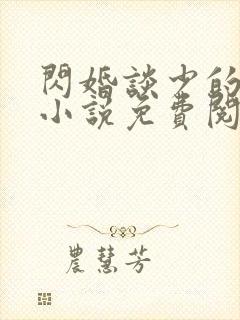 閃婚談少的
小說免費閱
農慧芳